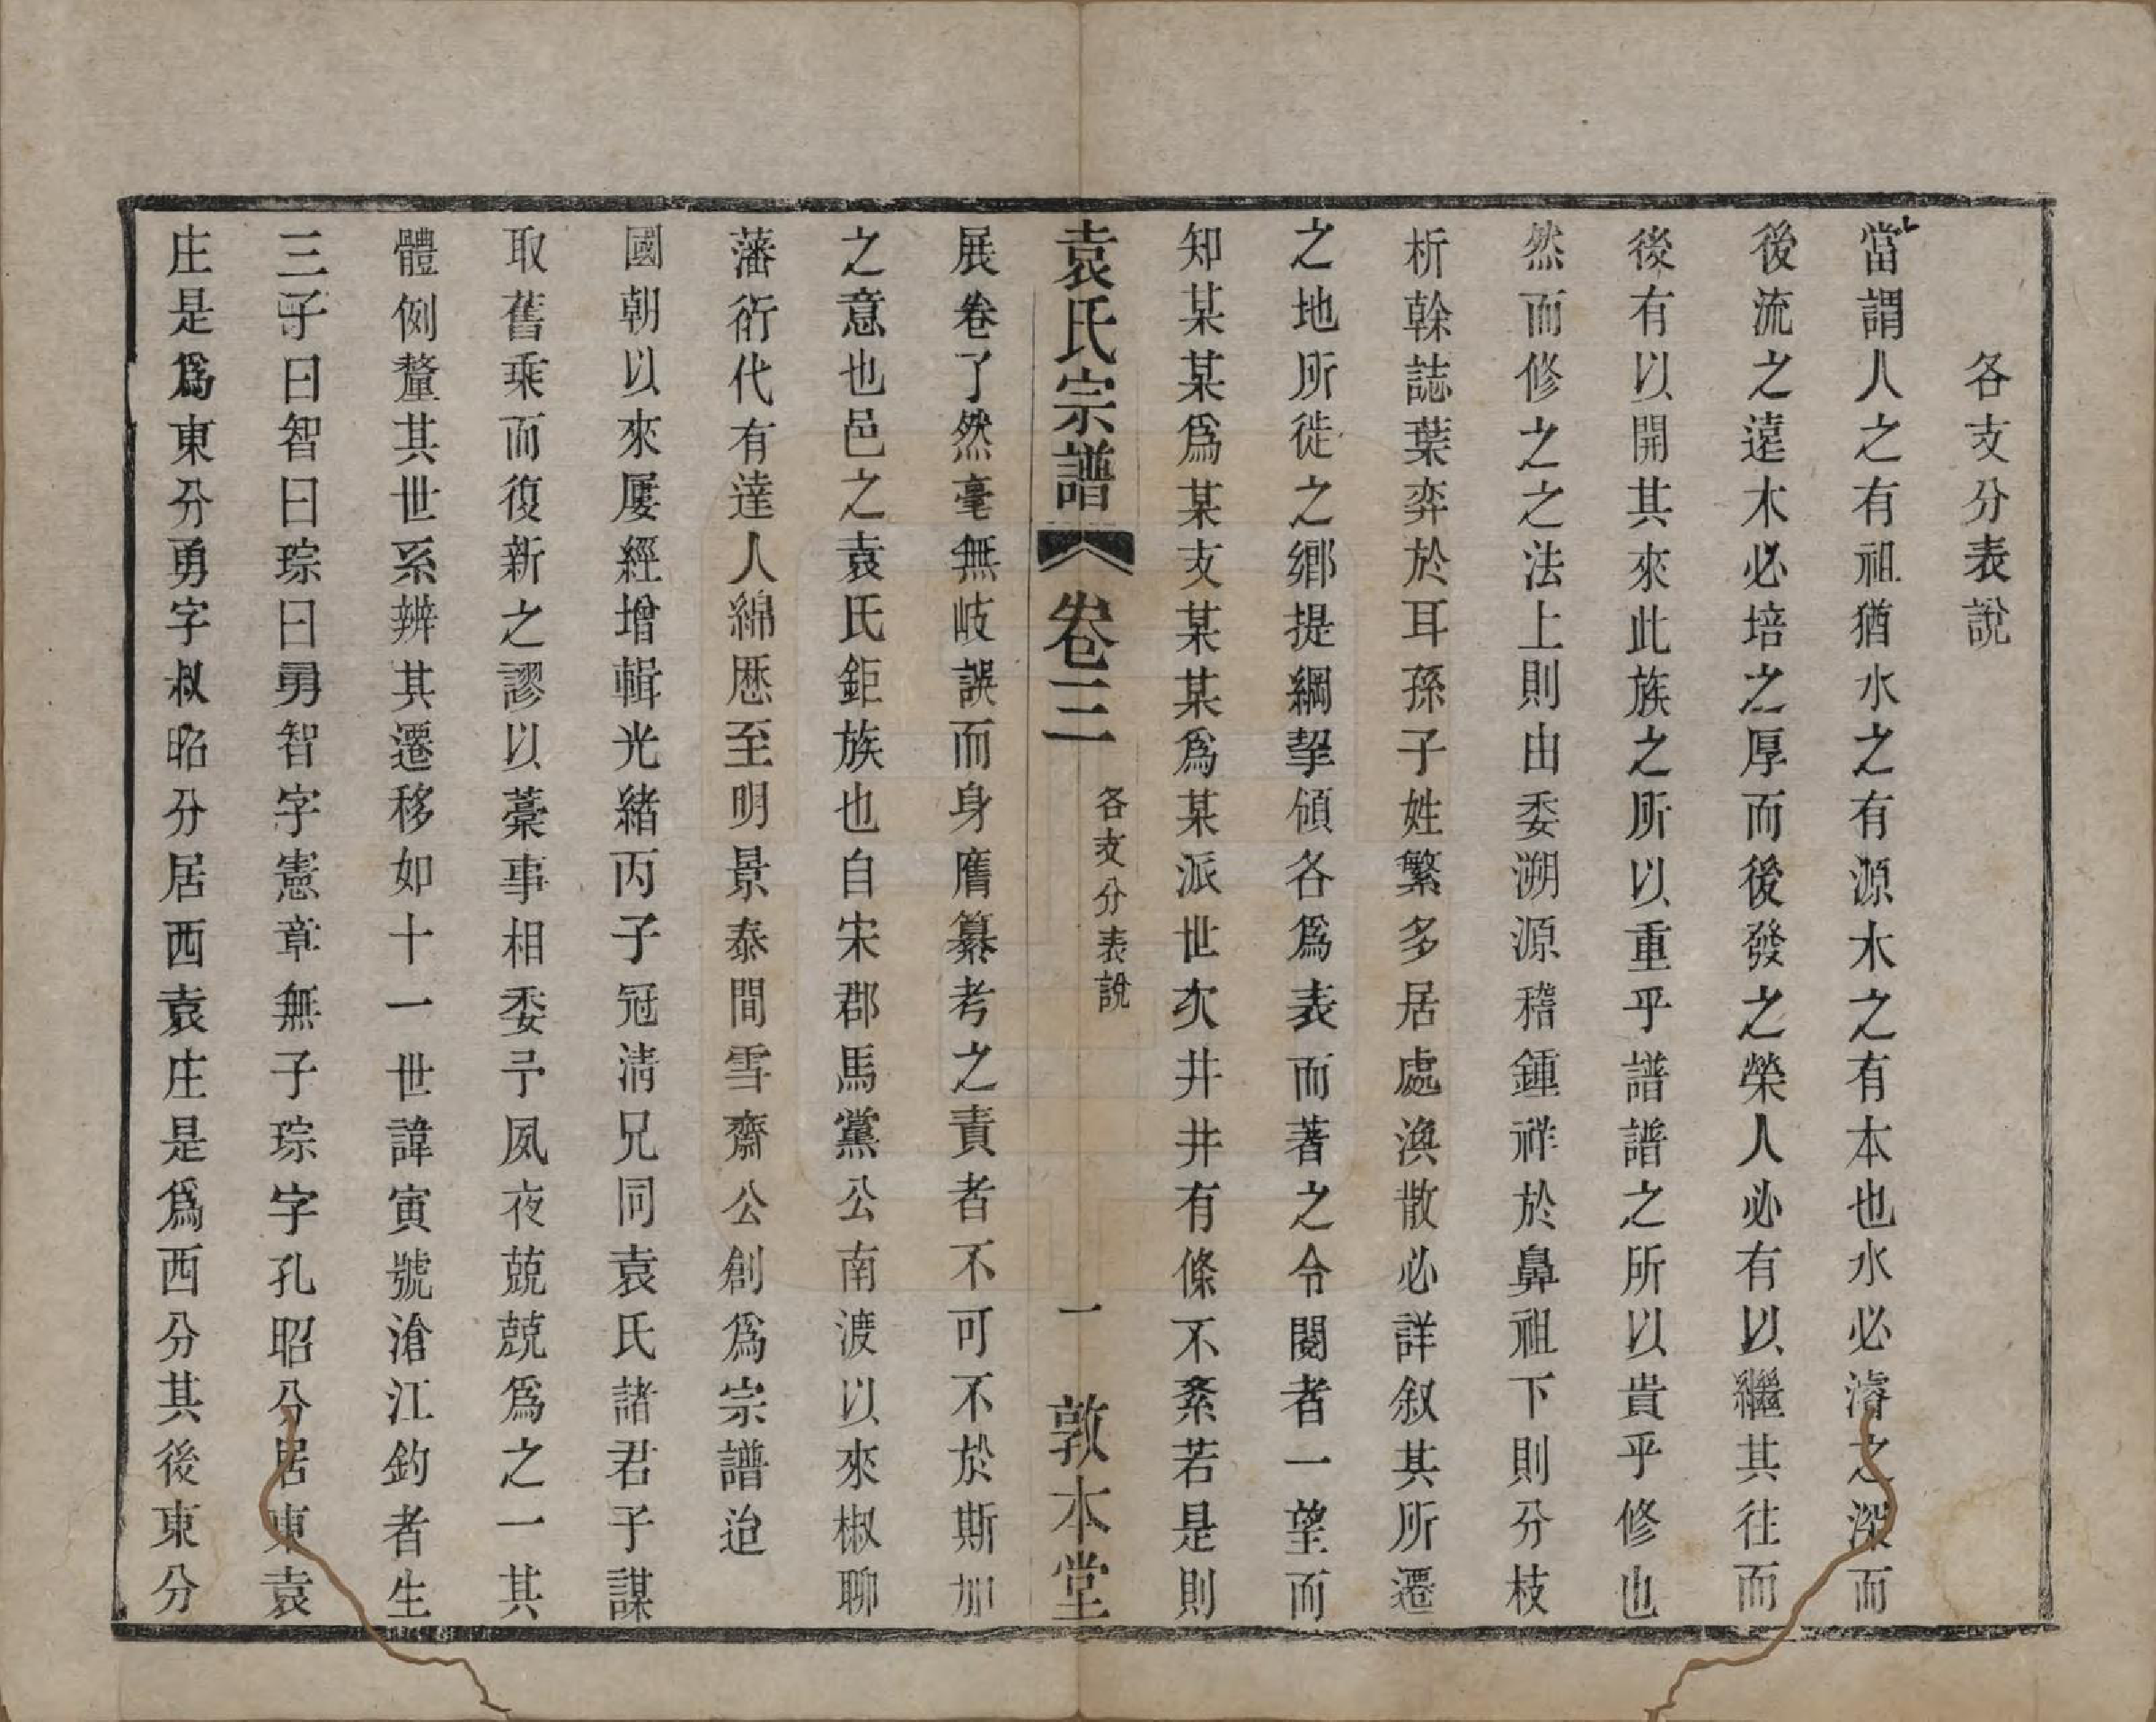 各支分表說
當謂人之有祖猶水之有源木之有本也水必濬之深而
後流之遠木必培之厚而後發之榮人必有以繼其往而
後有以開其來此族之所以重乎譜譜之所以貴乎修也
然而修之之法上則由委溯源稽鍾祥於鼻祖下則分枝
析榦誌葉弈於耳孫子姓繁多居處渙散必詳叙其所遷
之地所徙之鄉提綱挈領各爲表而著之令閱者一望而
知某某爲某支某某爲某派世次井井有條不紊若是則
袁氏宗譜 卷三 各支分表說 一 敦本堂
展卷了然毫無岐誤而身膺纂考之責者不可不於斯加
之意也邑之袁氏鉅族也自宋郡馬黨公南渡以來椒聊
藩衍代有達人綿歷至明景泰間雪齋公創爲宗譜迨
國朝以來屢經增輯光緒丙子冠淸兄同袁氏諸君子謀
取舊乘而復新之謬以藁事相委予夙夜兢兢爲之一其
體例釐其世系辨其遷移如十一世諱寅號滄江釣者生
三子曰智曰琮曰勇智字憲章無子琮字孔昭分居東袁
庄是爲東分勇字叔昭分居西袁庄是爲西分其後東分